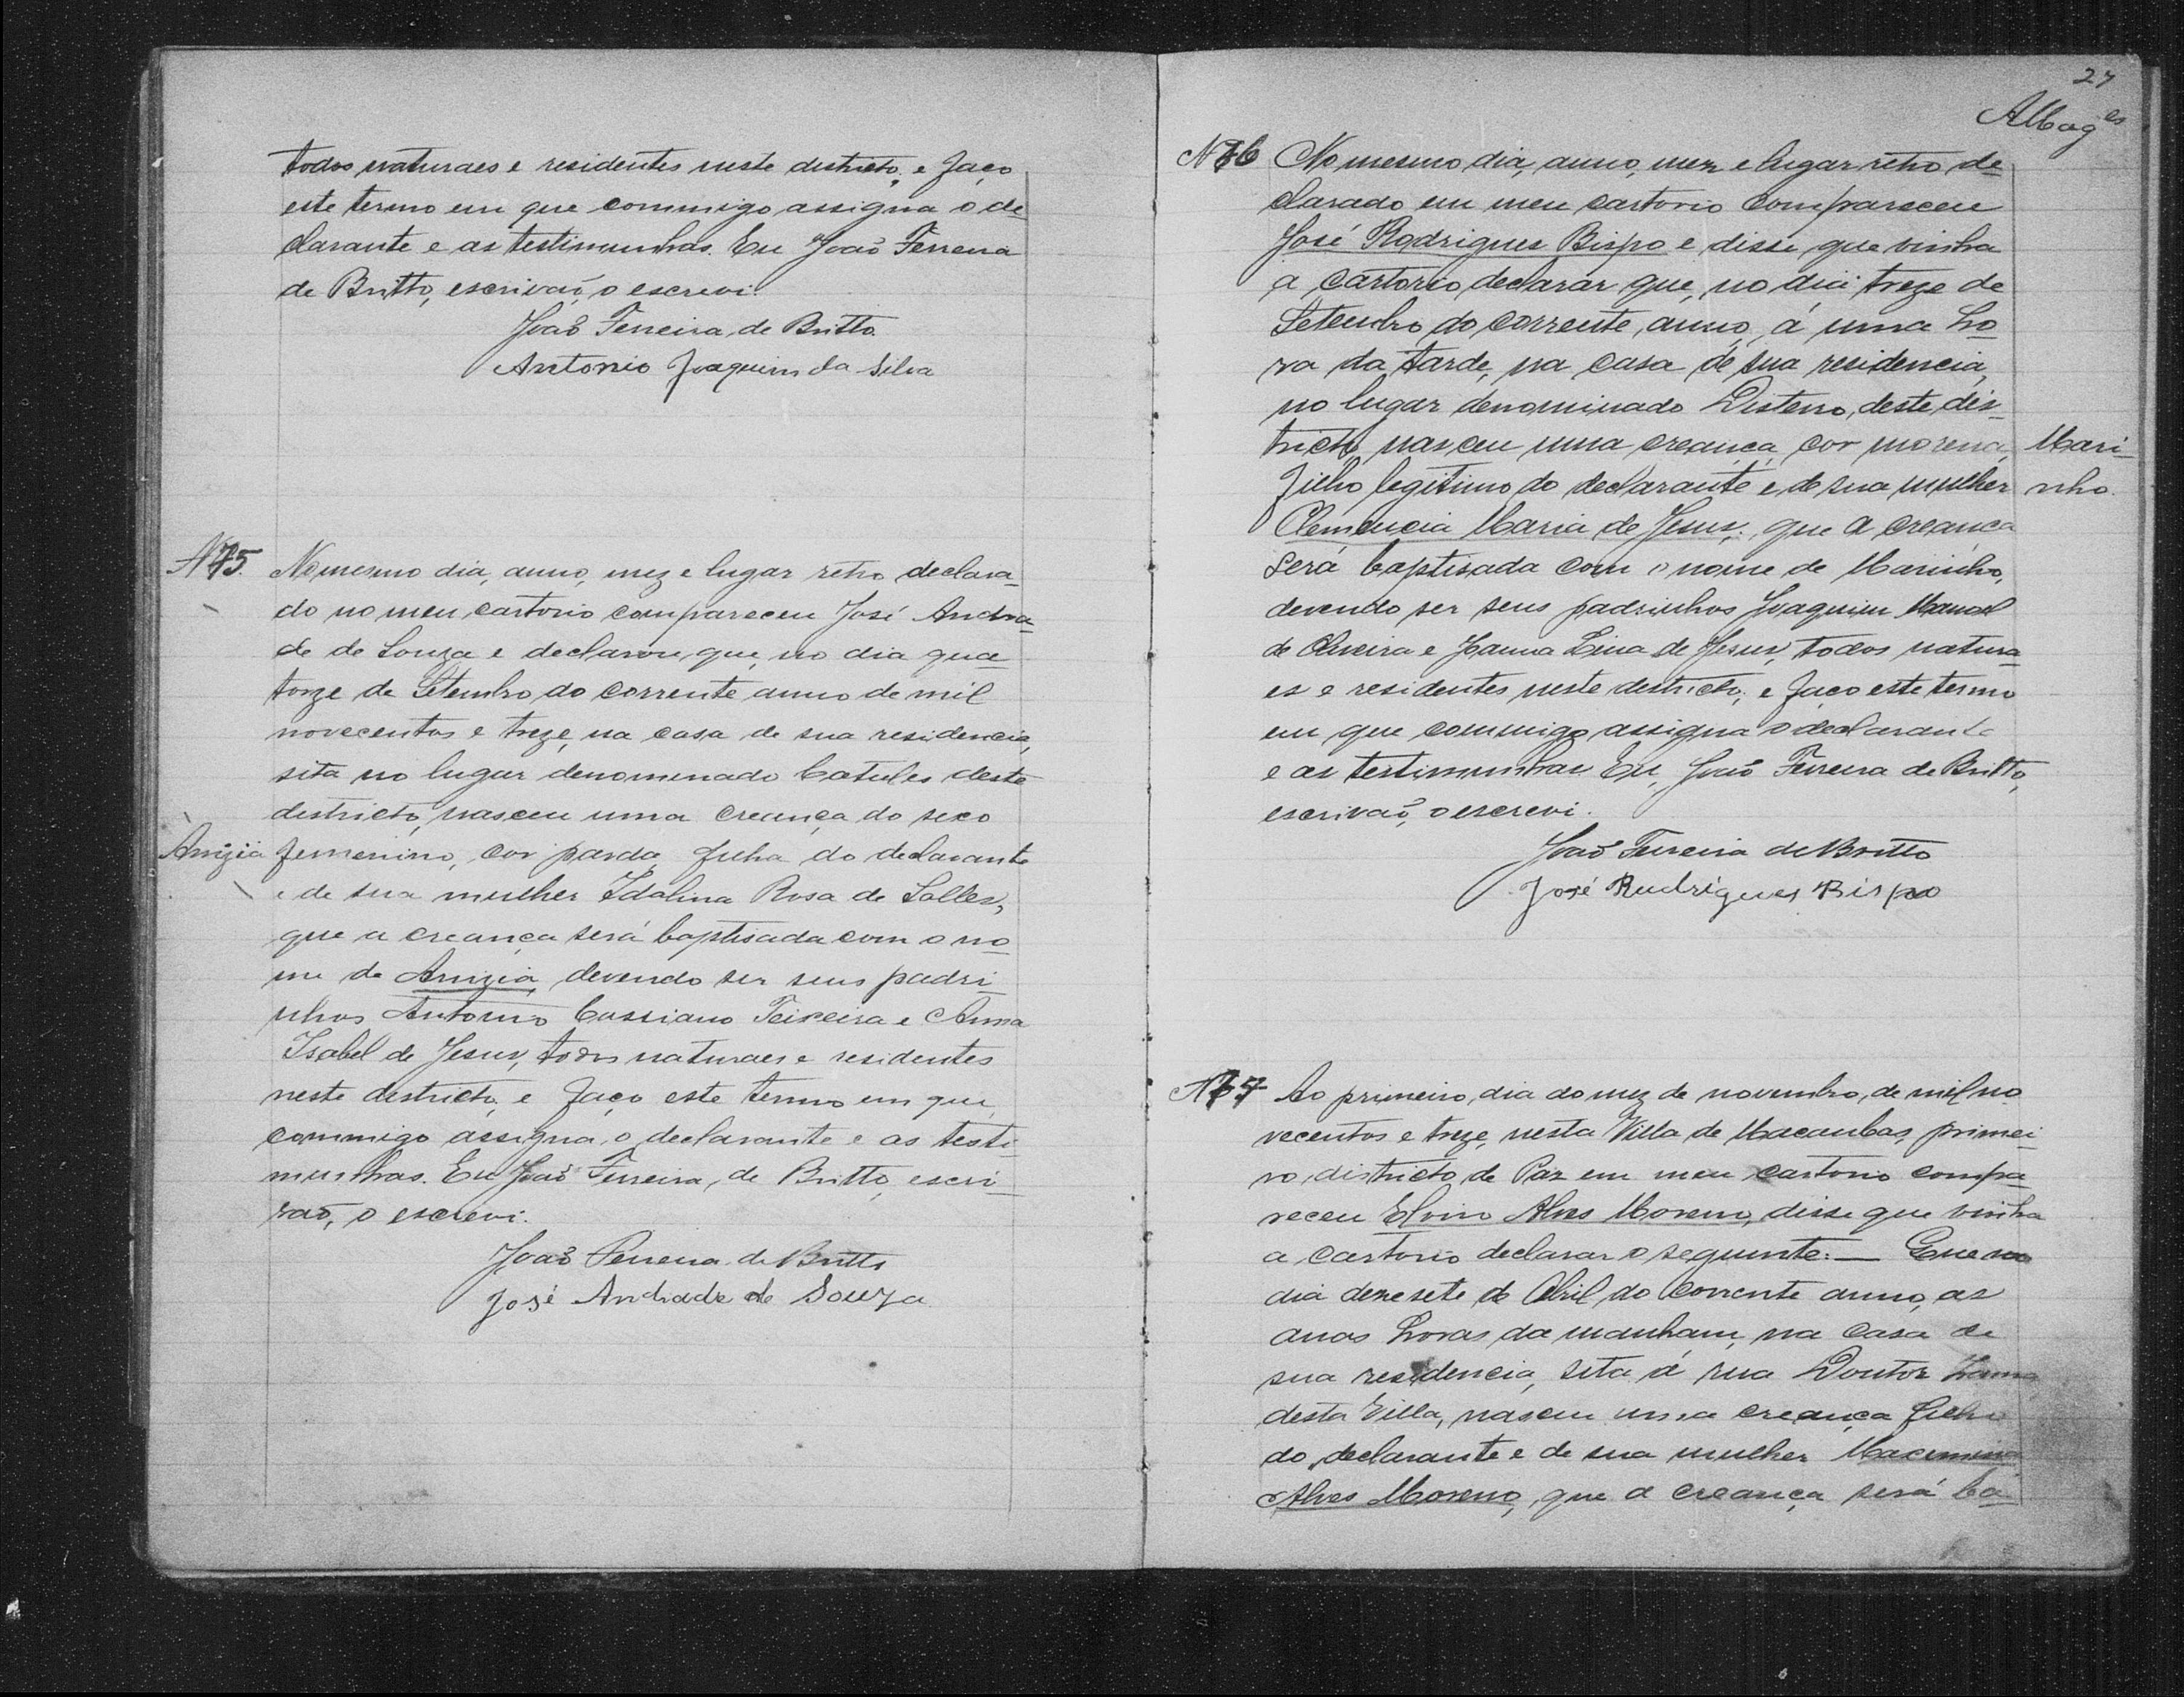 todos naturaes e residentes neste districto, e faço
este termo em que commigo assigna o de
clarante e as testimunhas. Eu João Ferreira
de Britto, escrivaõ, o escrevi.
João Ferreira de Britto.
Antonio Joaquim da Silva
N 75. No mesmo dia, anno, mez e lugar retro declara-
do no meu cartorio compareceu José Andra-
de de Souza e declarou que, no dia qua
torze de Setembro do corrente anno de mil
novecentos e treze, na casa de sua residencia,
sita no lugar denominado Catules deste
districto, nasceu uma creança do sexo
Anizia femenino, cor parda, filha do declarante
e de sua mulher Idalina Rosa de Salles,
que a creança será baptisada com o no
me de Anizia, devendo ser seus padri-
nhos Antonio Cassiano Teixeira e Anna
Isabel de Jesus, todos naturaes e residentes
neste districto, e faço este termo em que
commigo assigna o declarante e as testi-
munhas. Eu João Ferreira, de Britto, escri-
vaõ, o escrevi.
João Ferreira de Britto
José Andrade de Souza
27
N 76 No mesmo dia, anno, mez e lugar retro de-
clarado em meu cartorio compareceu
José Rodrigues Bispo e disse que vinha
a cartorio declarar que, no dia treze de
Setembro do corrente, anno, á uma ho-
ra da tarde, na casa de sua residencia,
no lugar denominado Desterro, deste dis-
tricto, nasceu uma creança, cor morena, Mari-
filho legitimo do declarante e de sua mulher nho.
Clemencia Maria de Jesus; que a creança
será baptisada com o nome de Marinho,
devendo ser seus padrinhos Joaquim Manoel
de Oliveira e Joanna Lina de Jesus, todos natura-
es e residentes neste destricto, e faço este termo
em que commigo assigna o declarante
e as testimunhas Eu, João Ferreira de Britto,
escrivaõ, o escrevi.
João Ferreira de Britto
José Rudrigues Bispo
N 77 Ao primeiro, dia do mez de novembro, de mil no
vecentos e treze, nesta Villa de Macaubas, primei-
ro, districto de Paz em meu cartorio compa-
receu Elvio Alves Moreno, disse que vinha
a cartorio declarar o seguinte:— Que no
dia dezesete de Abril do corrente anno, as
duas horas da manham, na casa de
sua residencia, sita á rua Doutor
desta Villa, nasceu uma creança filho
do declarante e de sua mulher
Alves Moreno, que a creança será ba-